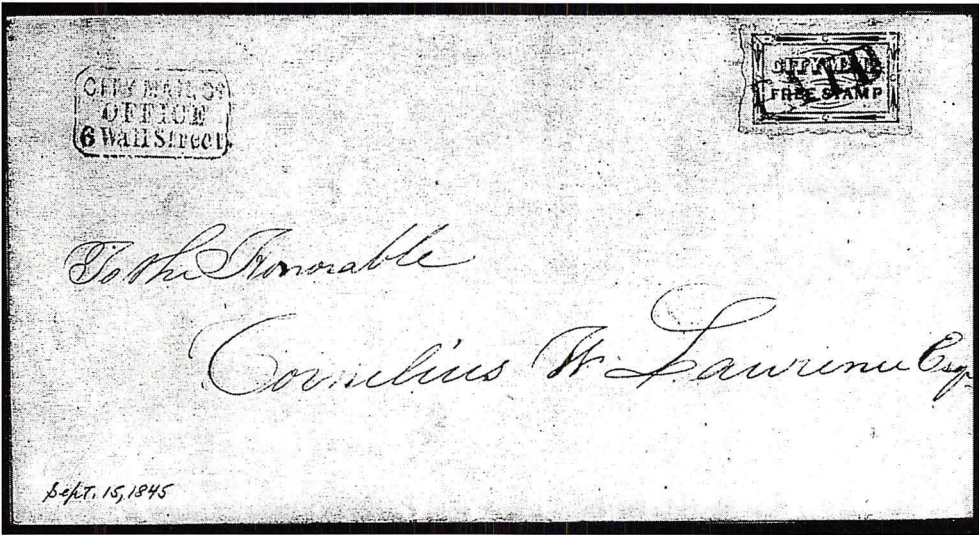 CITY MAIL CO
OFFICE
6 Wall Street.
CITY MAIL
FREE STAMP
PAID
To the Honorable
Cornelius W. Lawrence Esq
Sept. 15, 1845